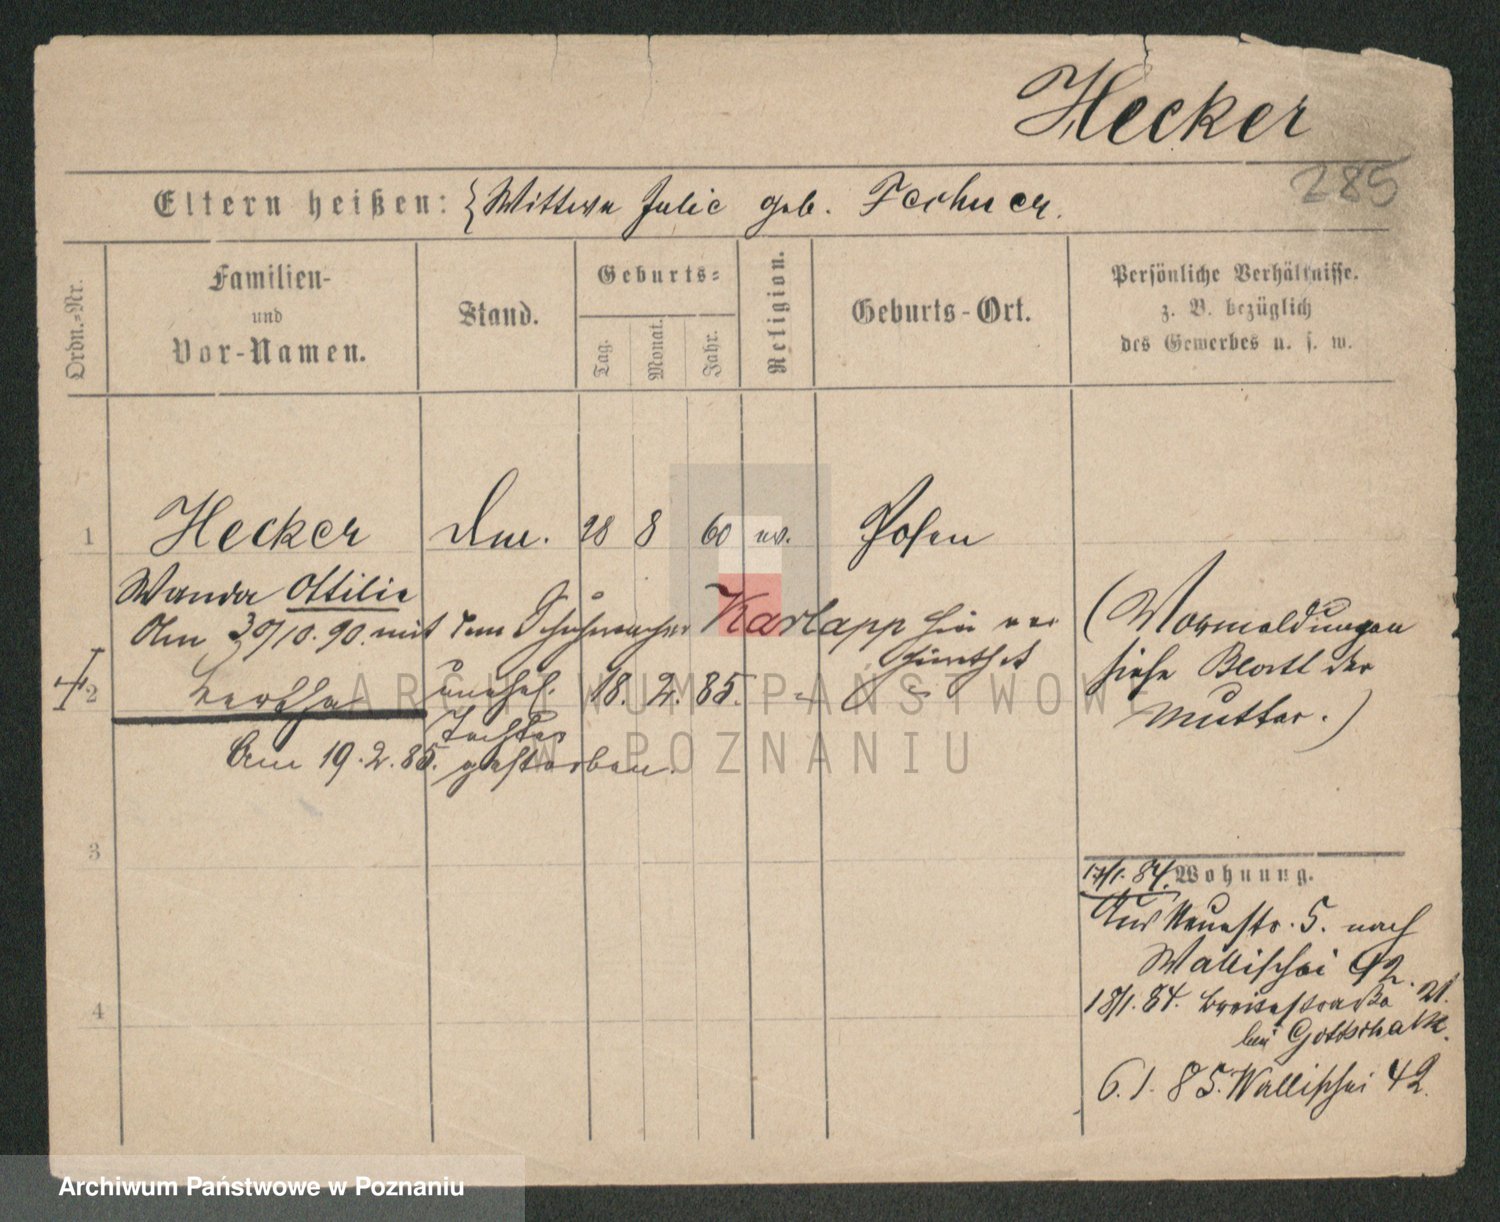 Hecker
285
Eltern heißen: { Wittwe Julie geb. Fechner.
Ordn.-Nr.
Familien-
und
Vor-Namen.
Stand.
Geburts-
Tag.
Monat.
Jahr.
Religion.
Geburts-Ort.
Persönliche Verhältnisse.
z. B. bezüglich
des Gewerbes u. s. w.
1 Hecker 28 8 60 ev. Posen
Wanda Ottilie
Am 30/10. 90. mit dem Schuhmacher Karlapp hier ver
heirathet
2 Bertha unehel. 18. 2. 85. " "
Tochter
Am 19.2.85. gestorben.
(Vormeldungen
siehe Blatt der
Mutter.)
3
4
17/1. 84. Wohnung.
Aus Neuestr. 5. nach
Wallischei 42.
18/1. 84. Breitestraße 21.
bei Gottschalk.
6.1.85. Wallischei 42.
ARCHIWUM PAŃSTWOWE
W POZNANIU
Archiwum Państwowe w Poznaniu